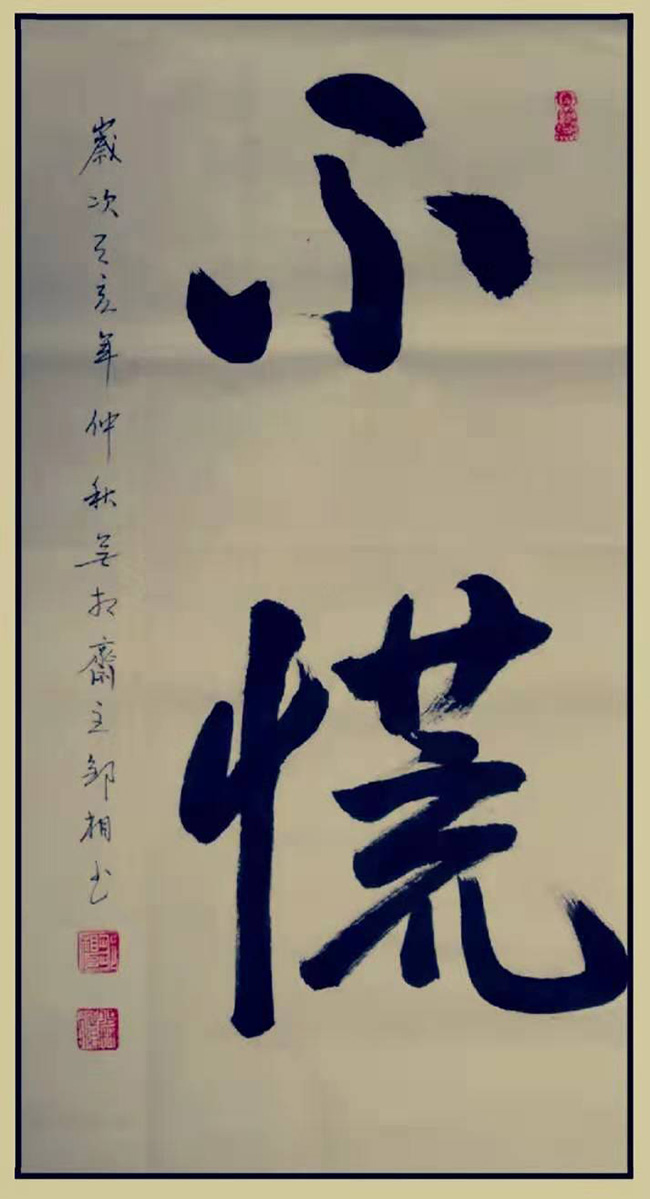 不慌
嵗次己亥年仲秋無相齋主鄒相书